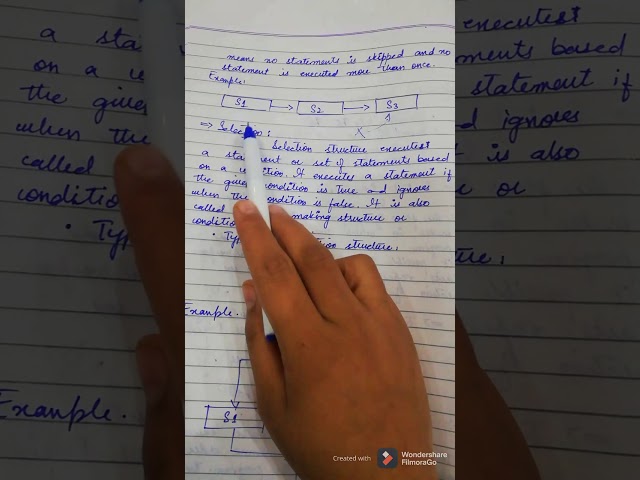 means no statements is skipped and no
statement is executed more than once.
Example:
S1 S2 S3
=> Selection:
Selection structure executest
a statement or set if statements based
on a condition. It executes a statement if
the given condition is true and ignores
when the condition is false. It is also
called making structure or
conditio
• Typ structure:
Example.
S1
Created with
Wondershare
FilmoraGo